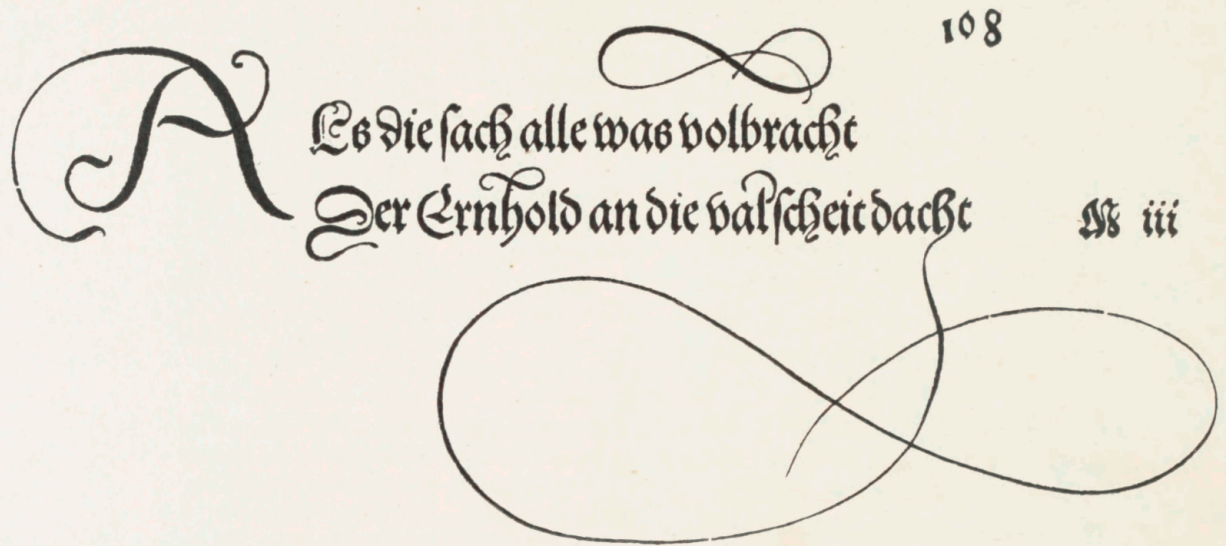 108
ALs die ſach alle was volbracht
Der Ernhold an die valſcheit dacht M iii